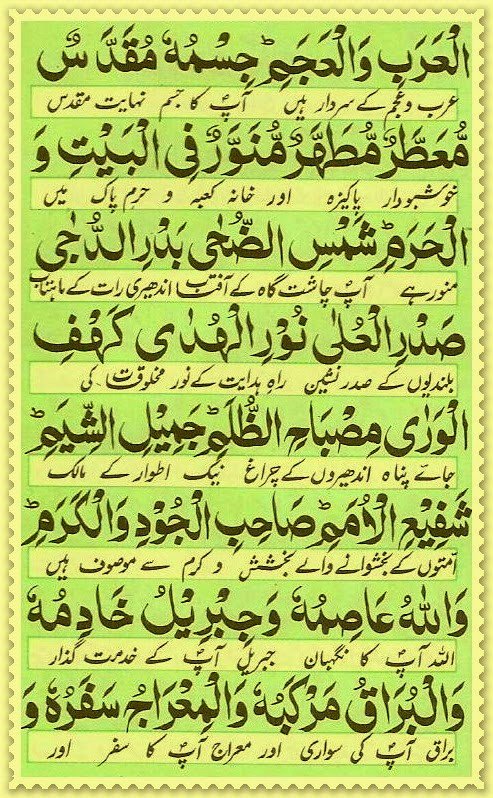 الْعَرَبِ وَالْعَجَمِ ؕ جِسْمُهٗ مُقَدَّسٌ
عرب و عجم کے سردار ہیں آپؐ کا جسم نہایت مقدس
مُّعَطَّرٌ مُّطَهَّرٌ مُّنَوَّرٌ فِی الْبَيْتِ وَ
خوشبودار پاکیزہ اور خانہ کعبہ و حرم پاک میں
الْحَرَمِ ؕ شَمْسِ الضُّحٰی بَدْرِ الدُّجٰی
منور ہے آپؐ چاشت گاہ کے آفتاب اندھیری رات کے ماہتاب
صَدْرِ الْعُلٰی نُوْرِ الْهُدٰی كَهْفِ
بلندیوں کے صدر نشین راہِ ہدایت کے نور مخلوقات کی
الْوَرٰی مِصْبَاحِ الظُّلَمِ ؕ جَمِيْلِ الشِّيَمِ ؕ
جائے پناہ اندھیروں کے چراغ نیک اطوار کے مالک
شَفِيْعِ الْاُمَمِ ؕ صَاحِبِ الْجُوْدِ وَالْكَرَمِ ؕ
اُمتوں کے بخشوانے والے بخشش و کرم سے موصوف ہیں
وَاللّٰهُ عَاصِمُهٗ وَجِبْرِيْلُ خَادِمُهٗ
اللہ آپؐ کا نگہبان جبریل آپؐ کے خدمت گذار
وَالْبُرَاقُ مَرْكَبُهٗ وَالْمِعْرَاجُ سَفَرُهٗ وَ
براق آپؐ کی سواری اور معراج آپؐ کا سفر اور